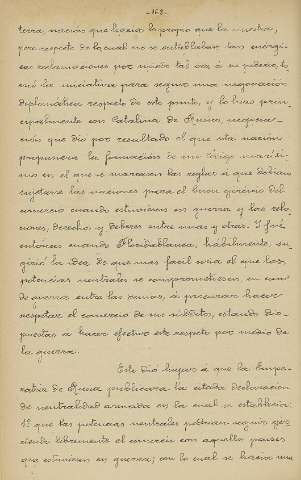 -168-
terra, nacion que hacía lo propio que la nuestra,
pero respecto de la cual no se entablaban tan enérgi-
cas reclamaciones por miedo tal vez á su poderío, to-
mó la iniciativa para seguir una negociación
diplomática respecto de este punto, y lo hizo prin-
cipalmente con Catalina de Rusia, negocia-
ción que dió por resultado el que esta nación
propusiera la formación de un código maríti-
mo en el que se marcasen las reglas á que debían
sujetarse las naciones para el buen gobierno del
comercio cuando estuvieran en guerra y las rela-
ciones, derechos y deberes entre unas y otras. Y fué
entonces cuando Floridablanca, hábilmente, su-
girió la idea de que mas facil sería el que las
potencias neutrales se comprometiesen, en caso
de guerra entre las demás, á procurar hacer
respetar el comercio de sus súbditos, estando dis-
puestas a hacer efectivo este respeto por medio de
la guerra.
Esto dió lugar á que la Empe-
ratriz de Rusia publicara la citada declaracion
de neutralidad armada en la cual se establecía:
1º que las potencias neutrales podrían seguir ha-
ciendo libremente el comercio con aquellos países
que estuviesen en guerra; con lo cual se hacía una